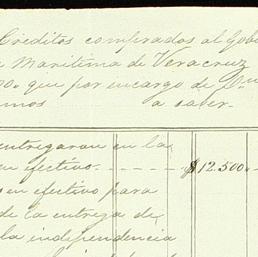 Créditos comprados al Gobi
Maritima de Veracruz
que por incargo de
a saver.
entregaron en la
en efectivo. $12.500.
en efectivo para
de la entrega de
la independencia